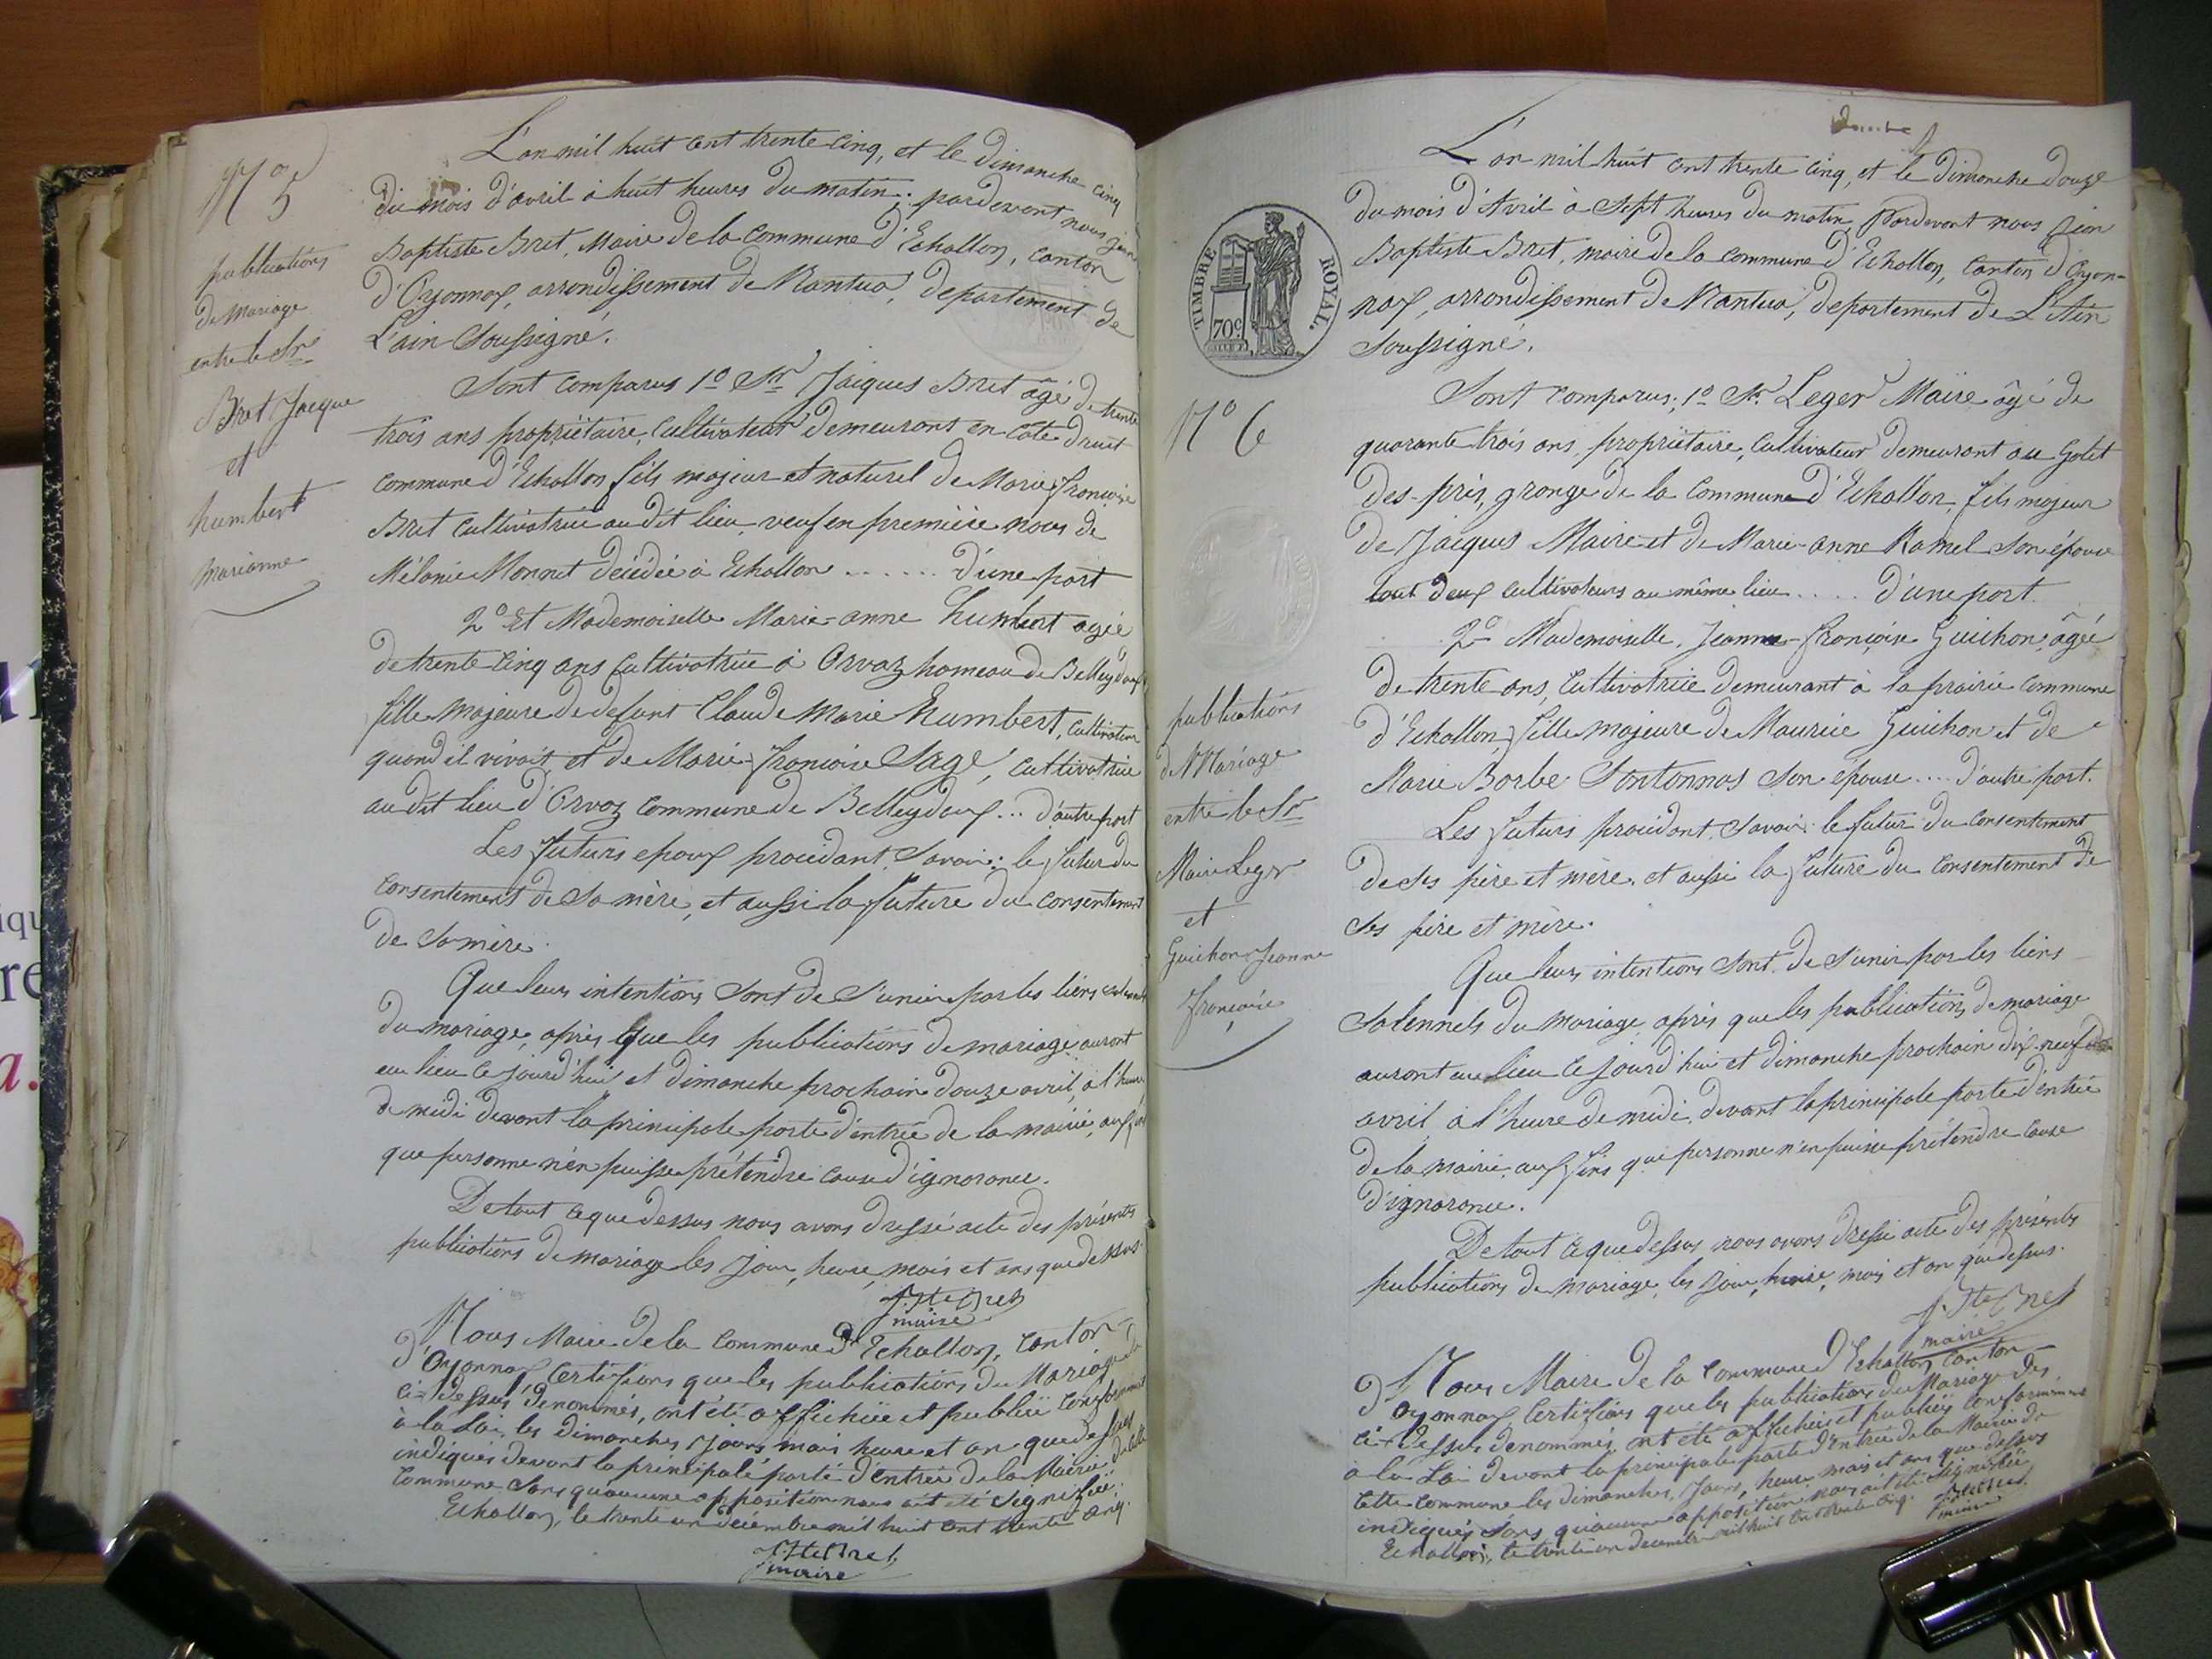 N° 5
publications
de Mariage
entre le Sr
Bret Jacque
et
humbert
marianne
L'an mil huit cent trente cinq, et le dimanche cinq
du mois d'avril à huit heures du matin; pardevant nous jean
Baptiste Bret, Maire de la commune d'Echallon, canton
d'Oyonnax, arrondissement de Nantua, departement de
L'ain Soussigné.
Sont comparus 1° Sr Jacques Bret âgé de trente
trois ans propriétaire, cultivateur demeurant en côte druit
commune d'Echallon fils majeur et naturel de Marie françoise
Bret cultivatrice au dit lieu, veuf en première noces de
Mélanie Monnet décédée à Echallon ...... d'une part
2° Et Mademoiselle Marie-anne humbert agée
de trente cinq ans cultivatrice à Orvaz hameau de Belleydoux
fille majeure de defunt Claude Marie humbert, cultivateur
quand il vivait et de Marie françoise Sage, cultivatrice
au dit lieu d'Orvaz commune de Belleydoux ... d'autre part
Les futurs epoux procédant Savoir; le futur du
consentement de Sa mère, et aussi la future du consentement
de Sa mère.
Que leurs intentions Sont de S'unir par les liens
du mariage, après que les publications de mariage auront
eu lieu ce jourd'hui et dimanche prochain douze avril, à l'heure
de midi devant la principale porte d'entrée de la mairie, aux fins
que personne n'en puisse prétendre cause d'ignorance.
De tout ce que dessus nous avons dressé acte des présentes
publications de mariage les jour, heure, mois et ans que dessus.
J. Bte Bret
maire
Nous Maire de la Commune d'Echallon, Canton
d'Oyonnax Certifions que les publications du Mariage
ci-dessus denommés, ont été affichée et publiée conformement
à la Loi, les dimanches, Jours mois heure et an que dessus
indiqués devant la principale porte d'entrée de la Mairie de cette
Commune Sans qu'aucune opposition nous ait été Signifiée.
Echallon, le trente un décembre mil huit cent trente cinq.
J. Bte Bret
maire
TIMBRE ROYAL.
70c
N° 6
publications
de Mariage
entre le Sr
Maire Leger
et
Guichon Jeanne
françoise
douze
L'an mil huit cent trente cinq, et le dimanche douze
du mois d'Avril à Sept heures du matin, Pardevant nous Jean
Baptiste Bret, maire de la commune d'Echallon, canton d'Oyon-
nax, arrondissement de Nantua, departement de L'Ain
Soussigné.
Sont comparus; 1° Sr. Leger Maire âgé de
quarante trois ans, propriétaire, cultivateur demeurant au golet
des-pris, grange de la commune d'Echallon, fils majeur
de Jacques Maire et de Marie-anne Ramel Son épouse
tout deux cultivateurs au même lieu ..... d'une part.
2° Mademoiselle, Jeanne-françoise Guichon, âgée
de trente ans, cultivatrice demeurant à la prairie commune
d'Echallon, fille majeure de Maurice Guichon et de
Marie Barbe Sontonnas Son épouse .... d'autre part.
Les futurs procédant, Savoir: le futur du consentement
de Ses père et mère, et aussi la future du consentement de
Ses père et mère.
Que leurs intentions Sont de S'unir par les liens
Solennels du mariage, après que les publications de mariage
auront eu lieu ce jourd'hui et dimanche prochain dix-neuf
avril à l'heure de midi, devant la principale porte d'entrée
de la mairie, aux fins que personne n'en puisse prétendre cause
d'ignorance.
De tout ce que dessus nous avons dressé acte des présentes
publications de mariage, les jour, heure, mois et an que dessus.
J. Bte Bret
maire
Nous Maire de la Commune d'Echallon Canton
d'Oyonnax, Certifions que les publications du Mariage des
ci-dessus denommés, ont été affichées et publiées conformement
à la Loi devant la principale porte d'Entrée de la Mairie de
cette commune les dimanches, Jours, heure, mois et ans que dessus
indiqués Sans qu'aucune opposition nous ait été Signifiée
Echallon, le trente un decembre mil huit cent trente cinq.
J. Bte Bret
maire